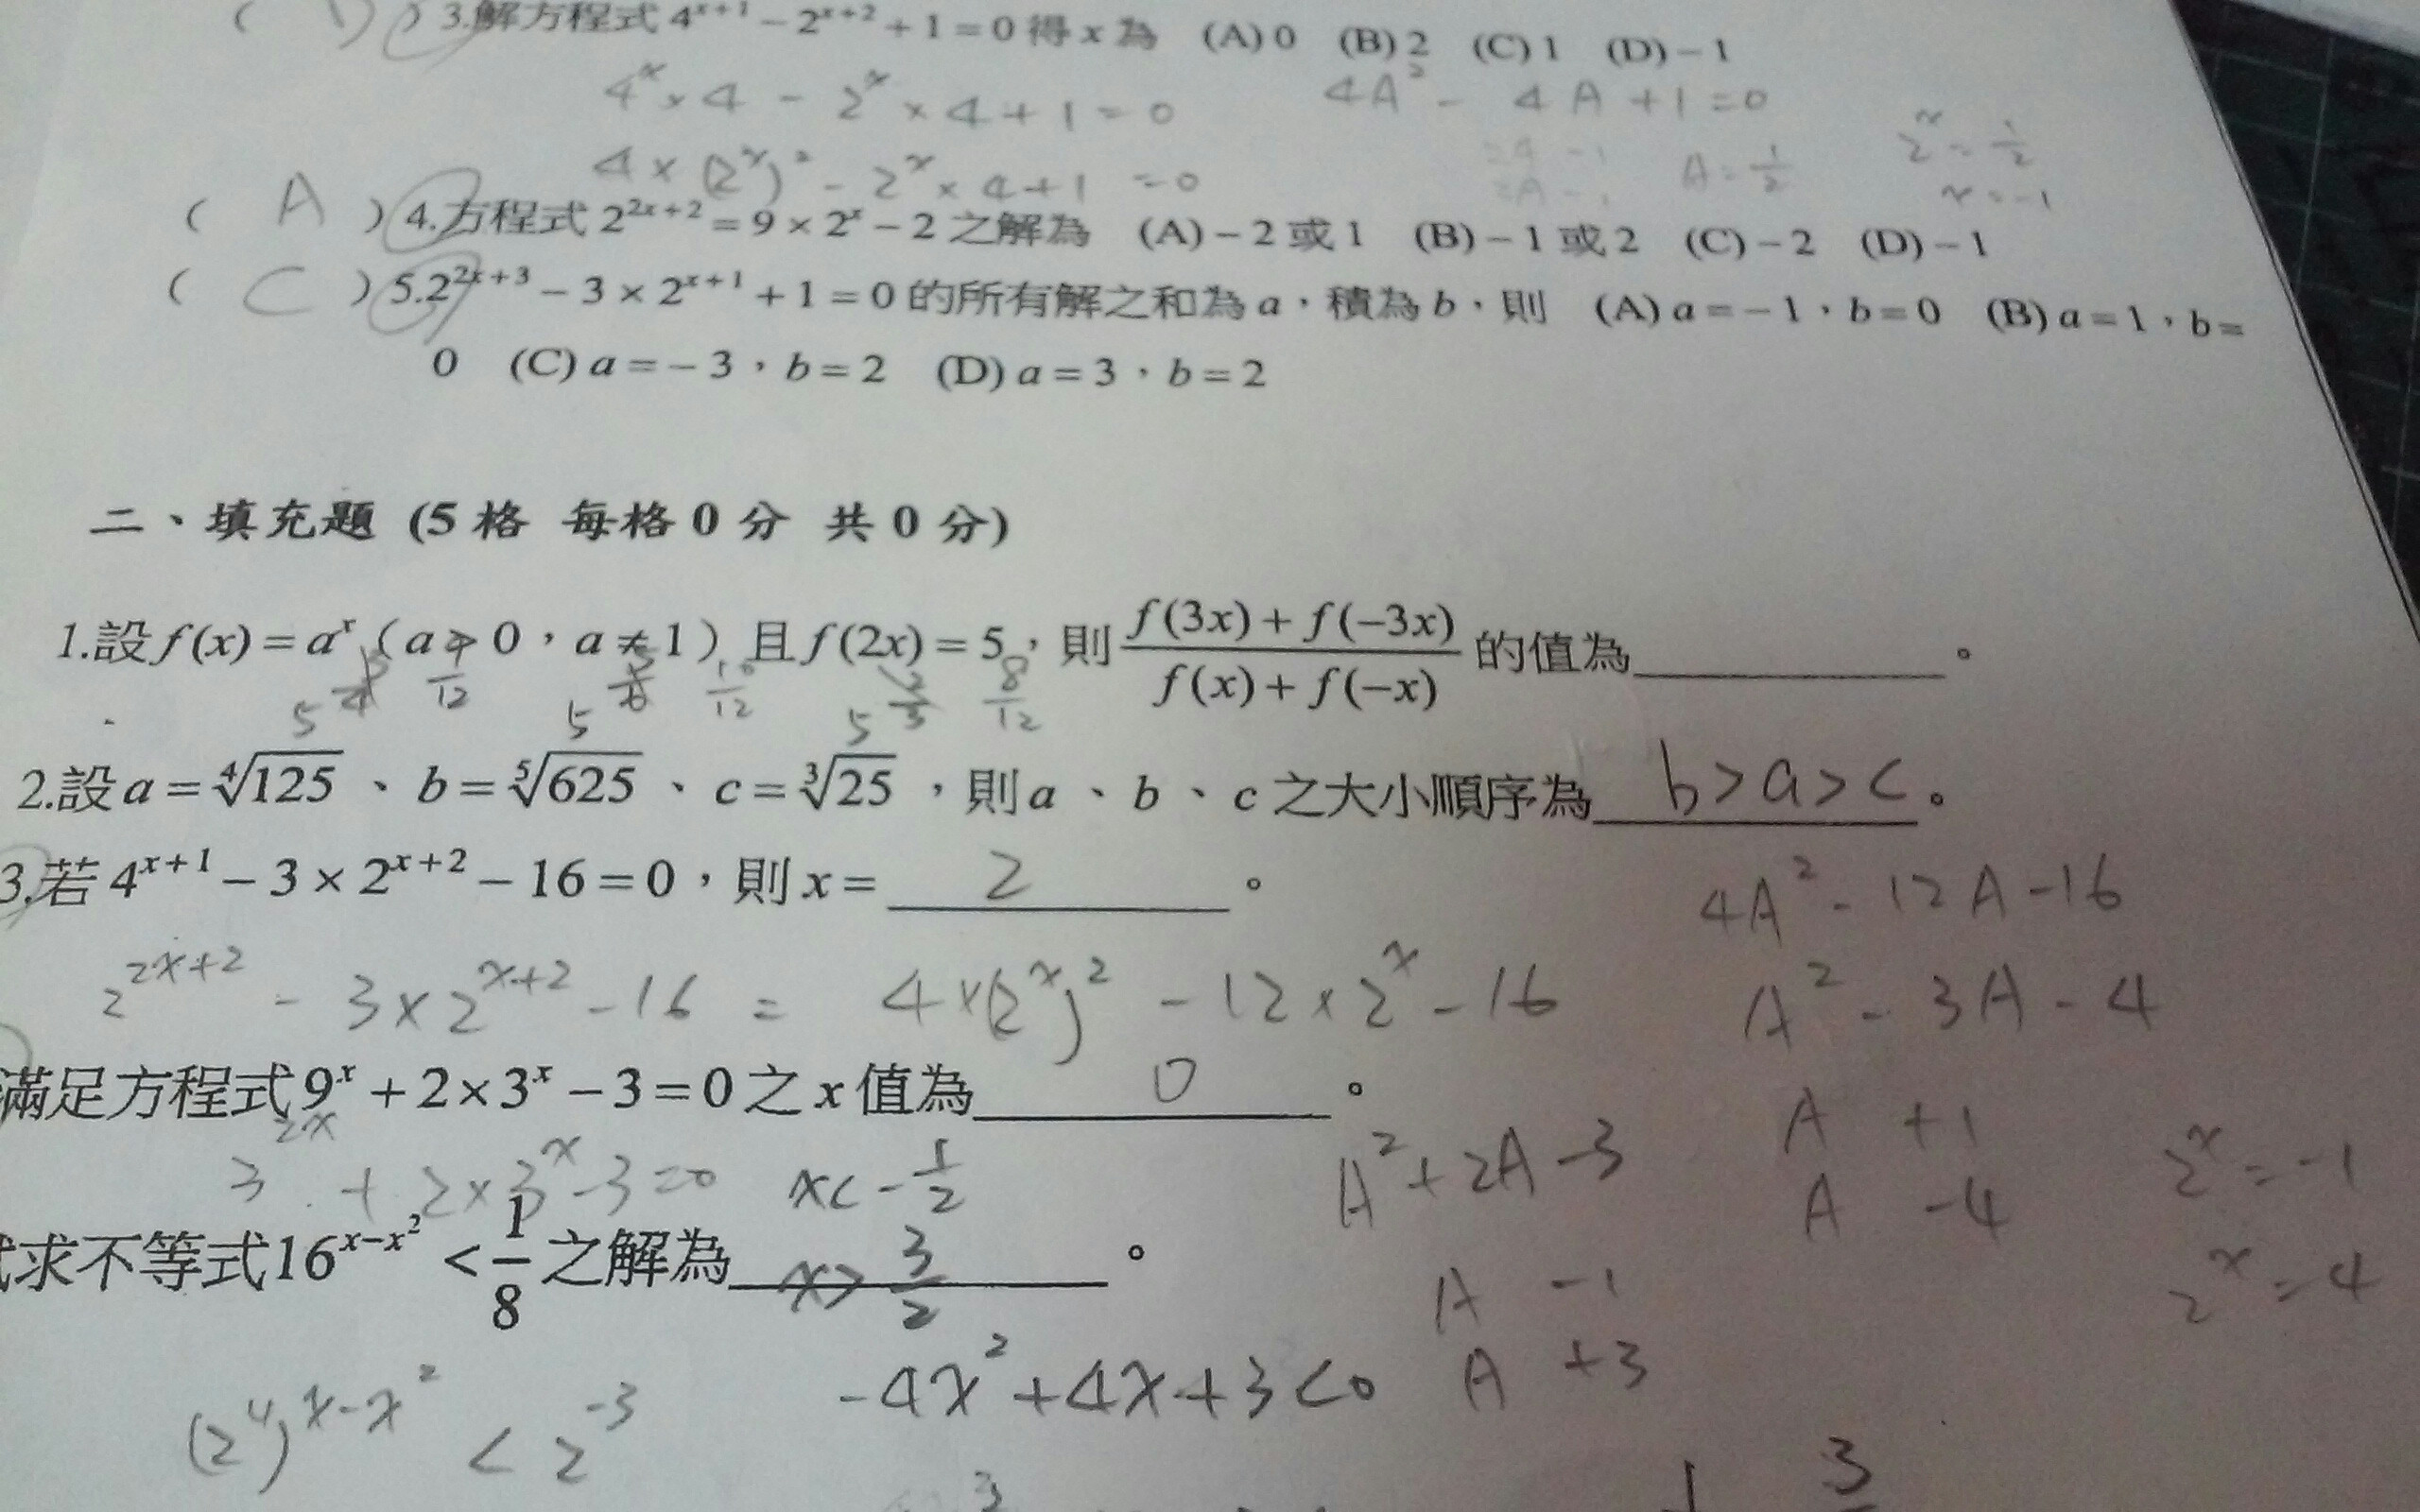 ( D ) 3.解方程式 4^{x+1} − 2^{x+2} + 1 = 0 得 x 為 (A) 0 (B) 2 (C) 1 (D) − 1
4^x × 4 - 2^x × 4 + 1 = 0 4A^2 - 4A + 1 = 0
4 × (2^x)^2 - 2^x × 4 + 1 = 0 A = 1/2 2^x = 1/2
x = -1
( A ) 4.方程式 2^{2x+2} = 9 × 2^x − 2 之解為 (A) − 2 或 1 (B) − 1 或 2 (C) − 2 (D) − 1
( C ) 5. 2^{2x+3} − 3 × 2^{x+1} + 1 = 0 的所有解之和為 a，積為 b，則 (A) a = − 1，b = 0 (B) a = 1，b =
0 (C) a = − 3，b = 2 (D) a = 3，b = 2
二、填充題 (5 格 每格 0 分 共 0 分)
1.設 f(x) = a^x（a > 0，a ≠ 1）且 f(2x) = 5，則 (f(3x) + f(−3x))/(f(x) + f(−x)) 的值為________。
5^{3/4} 9/12 5 10/12 5^{2/3} 8/12
2.設 a = ∜125 、 b = ⁵√625 、 c = ∛25 ，則 a 、 b 、 c 之大小順序為 b > a > c 。
3.若 4^{x+1} − 3 × 2^{x+2} − 16 = 0，則 x = 2 。
4A^2 - 12A - 16
2^{2x+2} - 3 × 2^{x+2} - 16 = 4 × (2^x)^2 - 12 × 2^x - 16 A^2 - 3A - 4
滿足方程式 9^x + 2 × 3^x − 3 = 0 之 x 值為 0 。
A +1
3^{2x} + 2 × 3^x - 3 = 0 x < -1/2 A^2 + 2A - 3 A -4 2^x = -1
求不等式 16^{x−x^2} < 1/8 之解為 x > 3/2 。
A -1 2^x = 4
A +3
(2^4)^{x-x^2} < 2^{-3} -4x^2 + 4x + 3 < 0
3